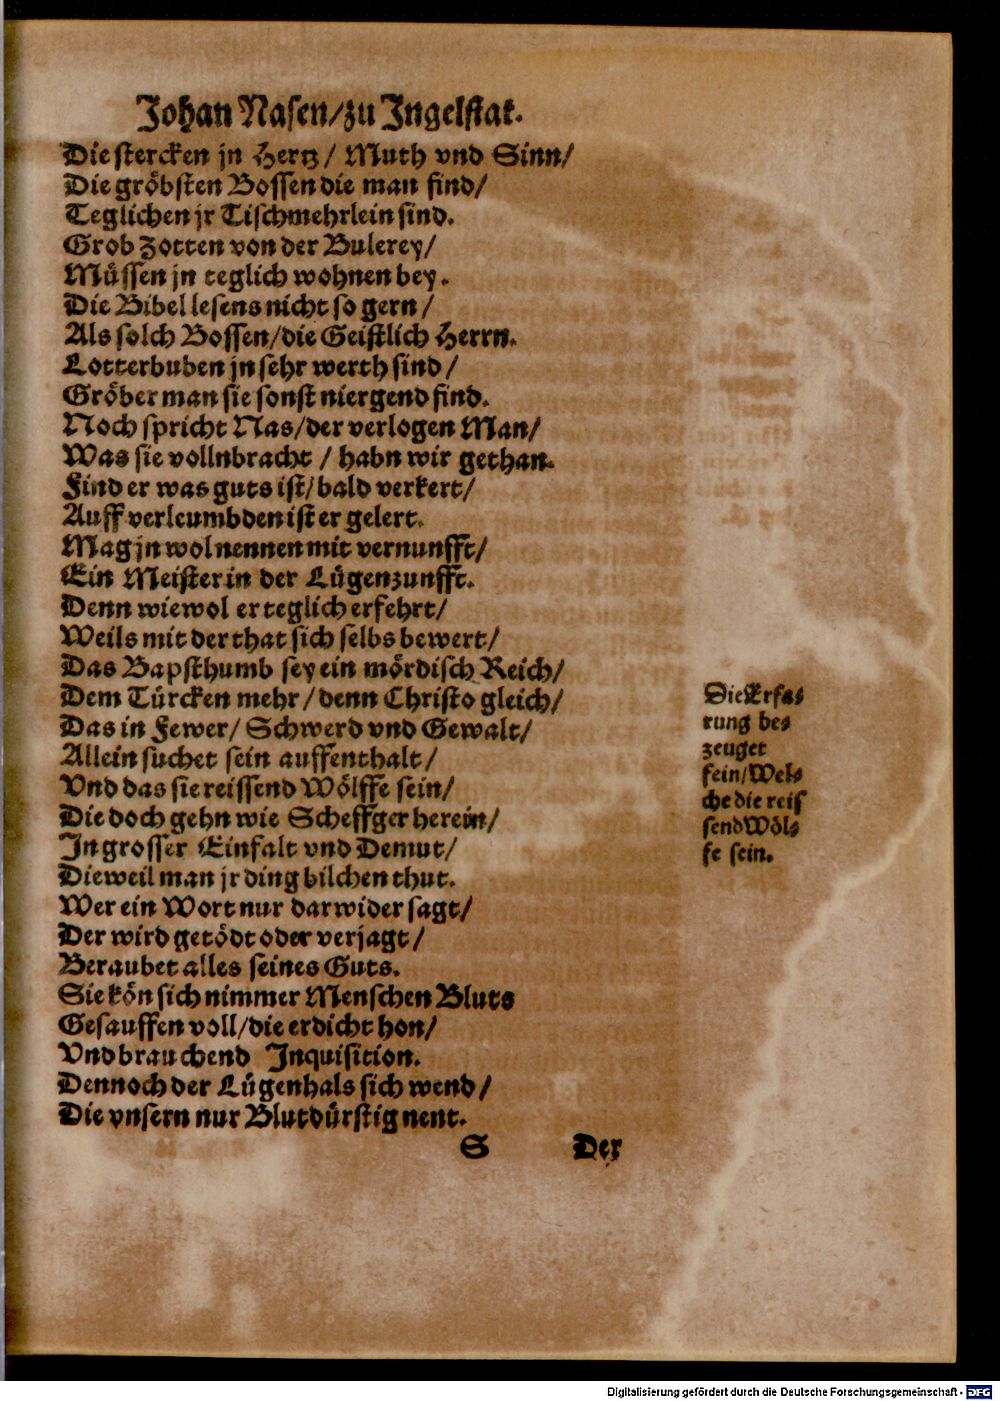 Johan Nasen/zu Ingelstat.
Die stercken jn Hertz/ Muth vnd Sinn/
Die gröbsten Bossen die man find/
Teglichen jr Tischmehrlein sind.
Grob Zotten von der Bulerey/
Müssen jn teglich wohnen bey.
Die Bibel lesens nicht so gern/
Als solch Bossen/die Geistlich Herrn.
Lotterbuben jn sehr werth sind/
Gröber man sie sonst niergend find.
Noch spricht Nas/der verlogen Man/
Was sie vollnbracht / habn wir gethan.
Find er was guts ist/bald verkert/
Auff verleumbden ist er gelert.
Mag jn wol nennen mit vernunfft/
Ein Meister in der Lügenzunfft.
Denn wiewol er teglich erfehrt/
Weils mit der that sich selbs bewert/
Das Bapsthumb sey ein mördisch Reich/
Dem Türcken mehr/denn Christo gleich/
Das in Fewer/ Schwerd vnd Gewalt/
Allein suchet sein auffenthalt/
Vnd das sie reissend Wölffe sein/
Die doch gehn wie Scheffger herein/
In grosser Einfalt vnd Demut/
Dieweil man jr ding bilchen thut.
Wer ein Wort nur darwider sagt/
Der wird getödt oder verjagt/
Beraubet alles seines Guts.
Sie kön sich nimmer Menschen Bluts
Gesauffen voll/die erdicht hon/
Vnd brauchend Inquisition.
Dennoch der Lügenhals sich wend/
Die vnsern nur Blutdürstig nent.
S Der
Die Erfa⸗
rung be⸗
zeuget
fein/Wel⸗
che die reis
send Wöl⸗
fe sein.
Digitalisierung gefördert durch die Deutsche Forschungsgemeinschaft - DFG